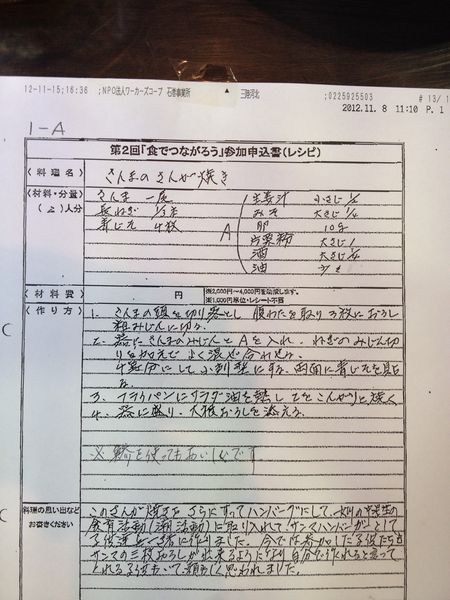 12-11-15;16:36 ;NPO法人ワーカーズコープ 石巻事業所 三陸河北 ;0225925503 # 13/ 1
2012.11. 8 11:10 P. 1
1-A
第2回「食でつながろう」参加申込書(レシピ)
(料理名) さんまのさんが焼き
(材料・分量)
(2)人分
さんま 一尾
長ねぎ 1/3本
青じそ 4枚
A
生姜汁 小さじ
みそ 大さじ
卵 10g
片栗粉 大さじ1
酒 大さじ
油 少々
(材料費) 円 ※2,000円~4,000円を助成します。
※1,000円単位・レシート不要
(作り方)
1. さんまの頭を切り落とし 腹わたを取り 3枚におろし
粗みじんに切る。
2. 器にさんまのみじんとAを入れ、ねぎのみじん切
りを加えて よく混ぜ合わせる。
4等分にして小判型にする、両面に青じそを
3. フライパンにサラダ油を熱し こんがりと焼く
4. 器に盛り、大根おろしを添える。
※ を使ってもおいしいです
料理の思い出など
お書きください
このさんが焼きを さらに ハンバーグにして、
食育活動 に取り入れて サンマハンバーグとして
子供達と一緒に作りました。今では参加した子供たちも
サンマの三枚おろしが出来るようになり 自分で作れると言って
くれる 思われました。